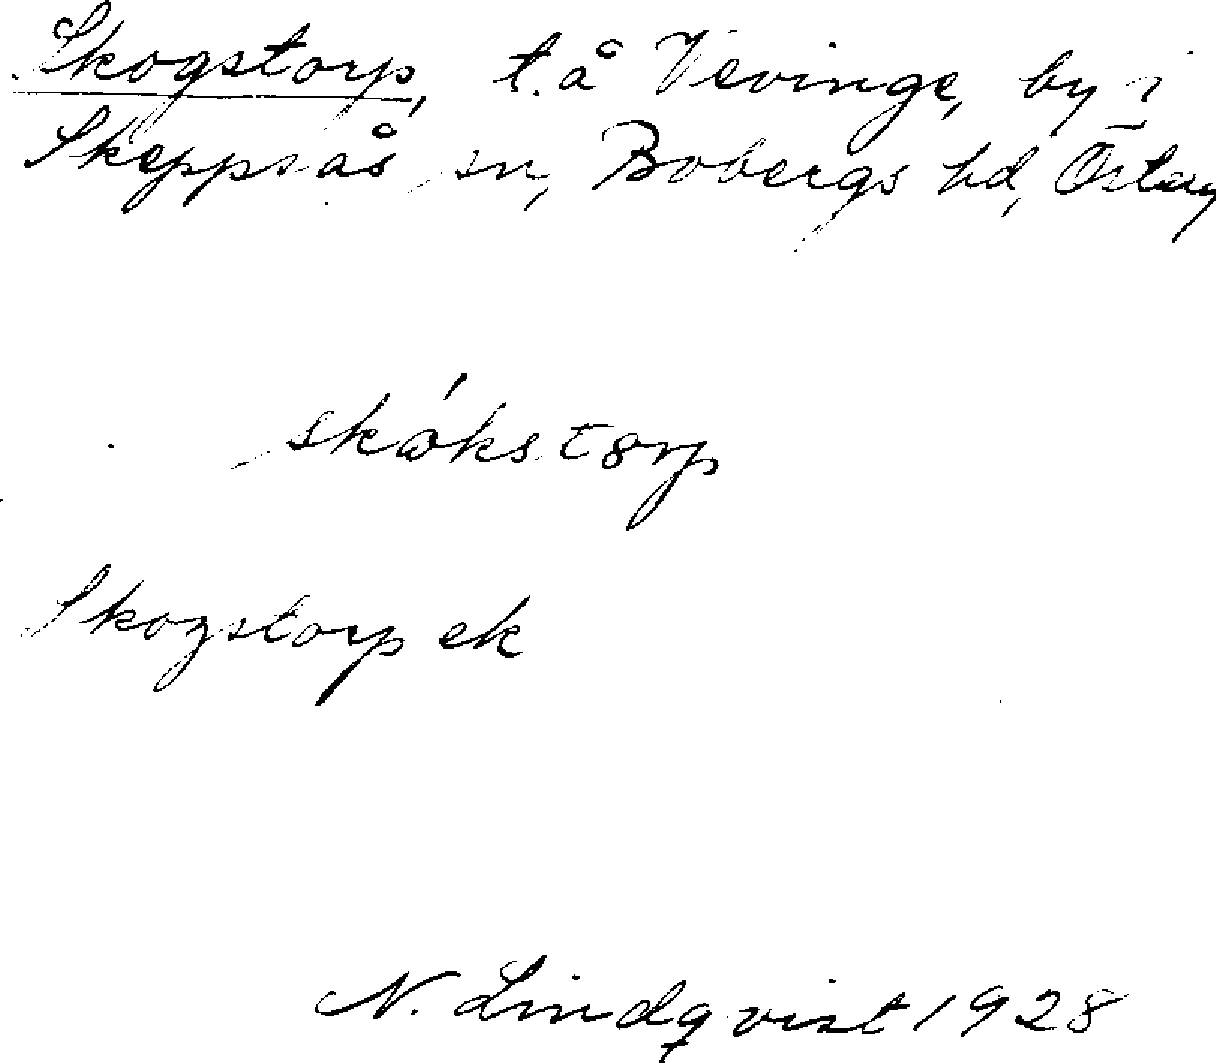 Skogstorp, t. å Vevinge, by i
Skeppsås sn, Bobergs hd, Österg
skógkstorp
Skogstorp ek
N. Lindqvist 1928